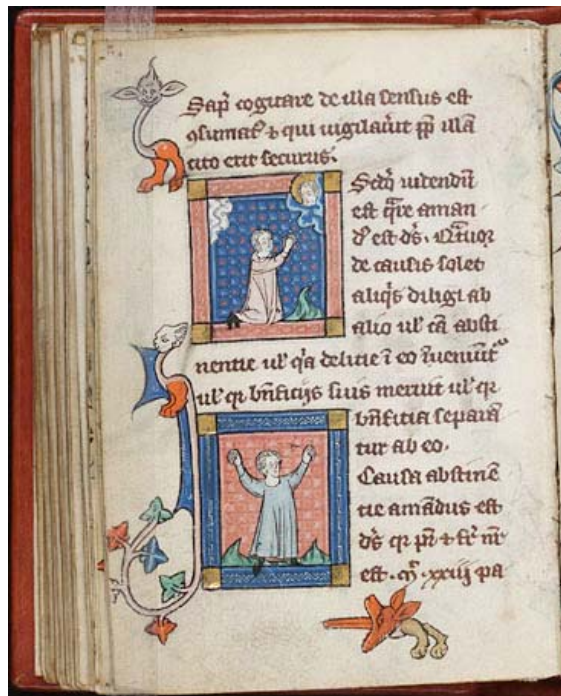 Sap̄ cogitare de illa sensus est
ꝯsumat⁹ ⁊ qui uigilau̾it ꝓp̄ illā
cito erit securus.
uidendū
est q̄re aman
d⁹ est dꝰ. Q̄tuor
de causis solet
aliq̄s diligi ab
alio ul̾ cā absti
nentie ul̾ q̾a delitie ī eo īueniūt᷑
ul̾ qꝛ bn̄ficijs suis meruit ul̾ qꝛ
bn̄fitia separā
tur ab eo.
Causa abstinē
tie amādus est
dꝰ qꝛ pr̄ ⁊ fr̄ nr̄
est. xxiij pa